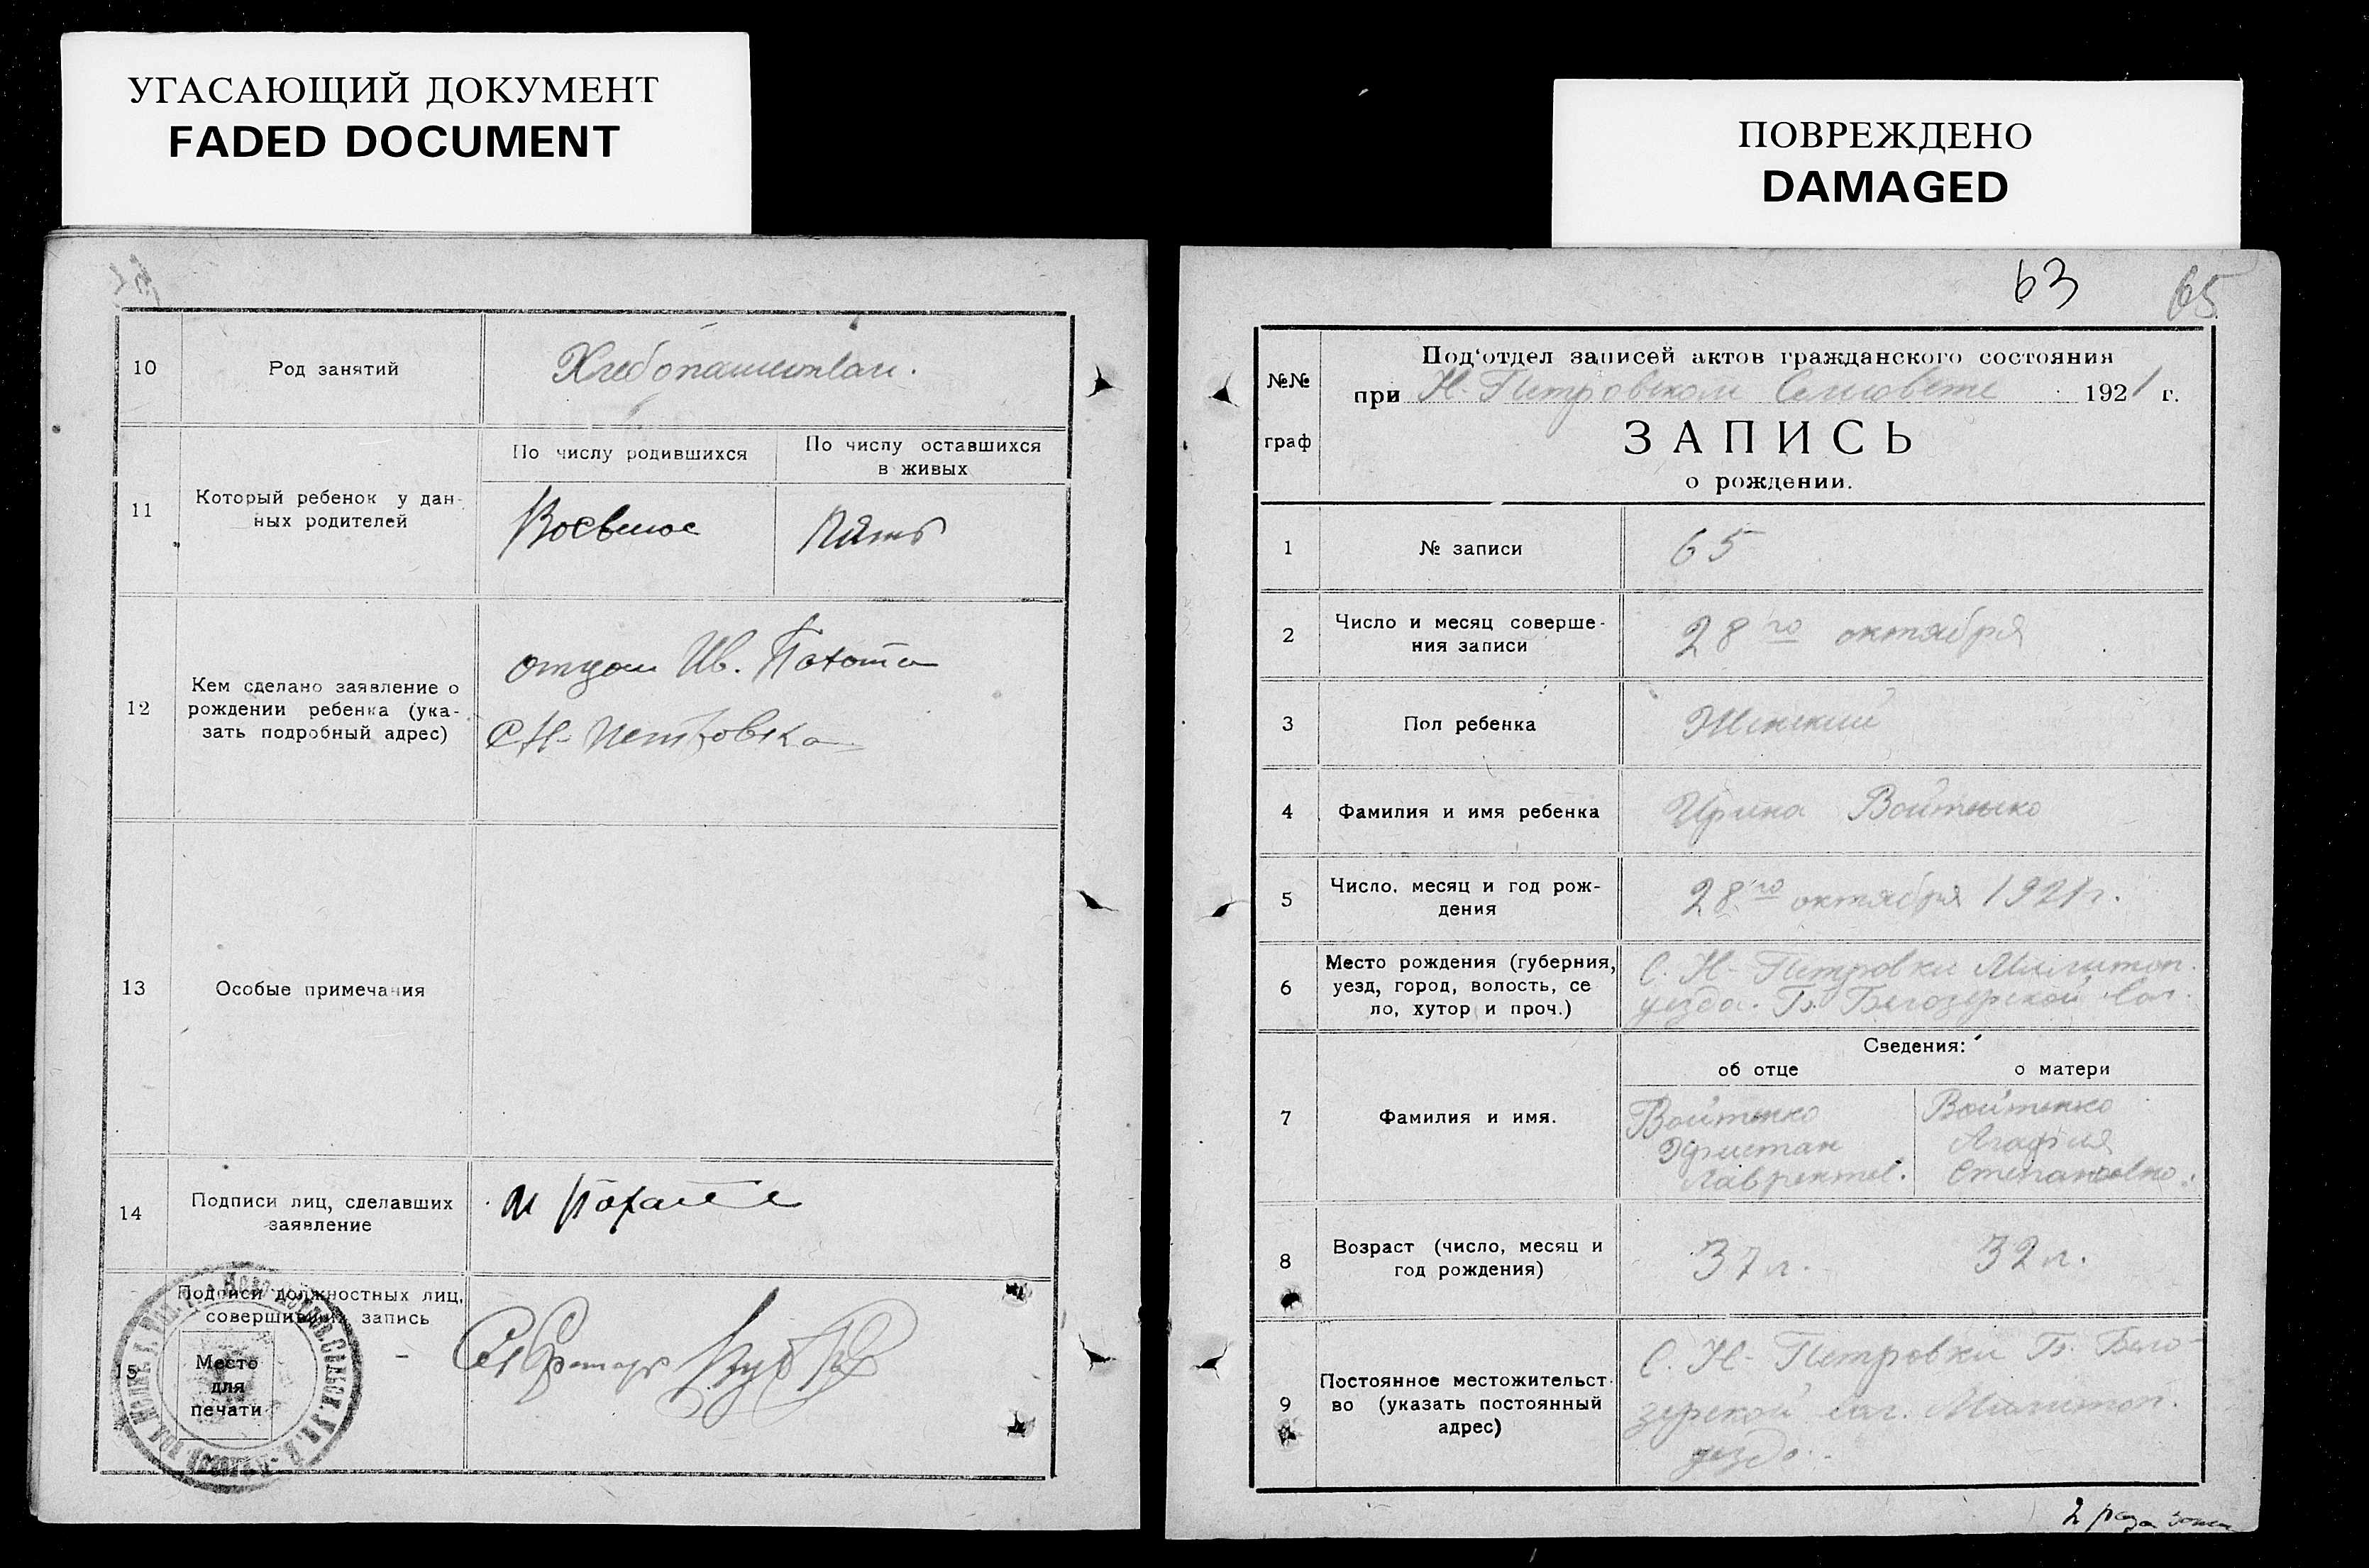 УГАСАЮЩИЙ ДОКУМЕНТ
FADED DOCUMENT
10
Род занятий
Хлебопашеством.
11
Который ребенок у дан-
ных родителей
По числу родившихся
По числу оставшихся
в живых
Восьмое
Пять
12
Кем сделано заявление о
рождении ребенка (ука-
зать подробный адрес)
отцом Ив.
С Н-Петровка
13
Особые примечания
14
Подписи лиц, сделавших
заявление
15
Подписи должностных лиц,
совершивших запись
Место
для
печати
Секретарь
ПОВРЕЖДЕНО
DAMAGED
63
65
№№
граф
Под‘отдел записей актов гражданского состояния
при Н-Петровском Сельсовете 1921 г.
ЗАПИСЬ
о рождении.
1
№ записи
65
2
Число и месяц соверше-
ния записи
28го октября
3
Пол ребенка
Женский
4
Фамилия и имя ребенка
Ирина Войтенко
5
Число, месяц и год рож-
дения
28го октября 1921 г.
6
Место рождения (губерния,
уезд, город, волость, се
ло, хутор и проч.)
С. Н-Петровки Мелитоп.
уезда. Б. Белозерской вол.
Сведения:
об отце
о матери
7
Фамилия и имя.
Войтенко
Лаврентев.
Войтенко
Агафия
Степановна.
8
Возраст (число, месяц и
год рождения)
37 л.
32 л.
9
Постоянное местожительст-
во (указать постоянный
адрес)
С. Н-Петровки Б. Бело-
зерской вол. Мелитоп.
уезда.
2 раза